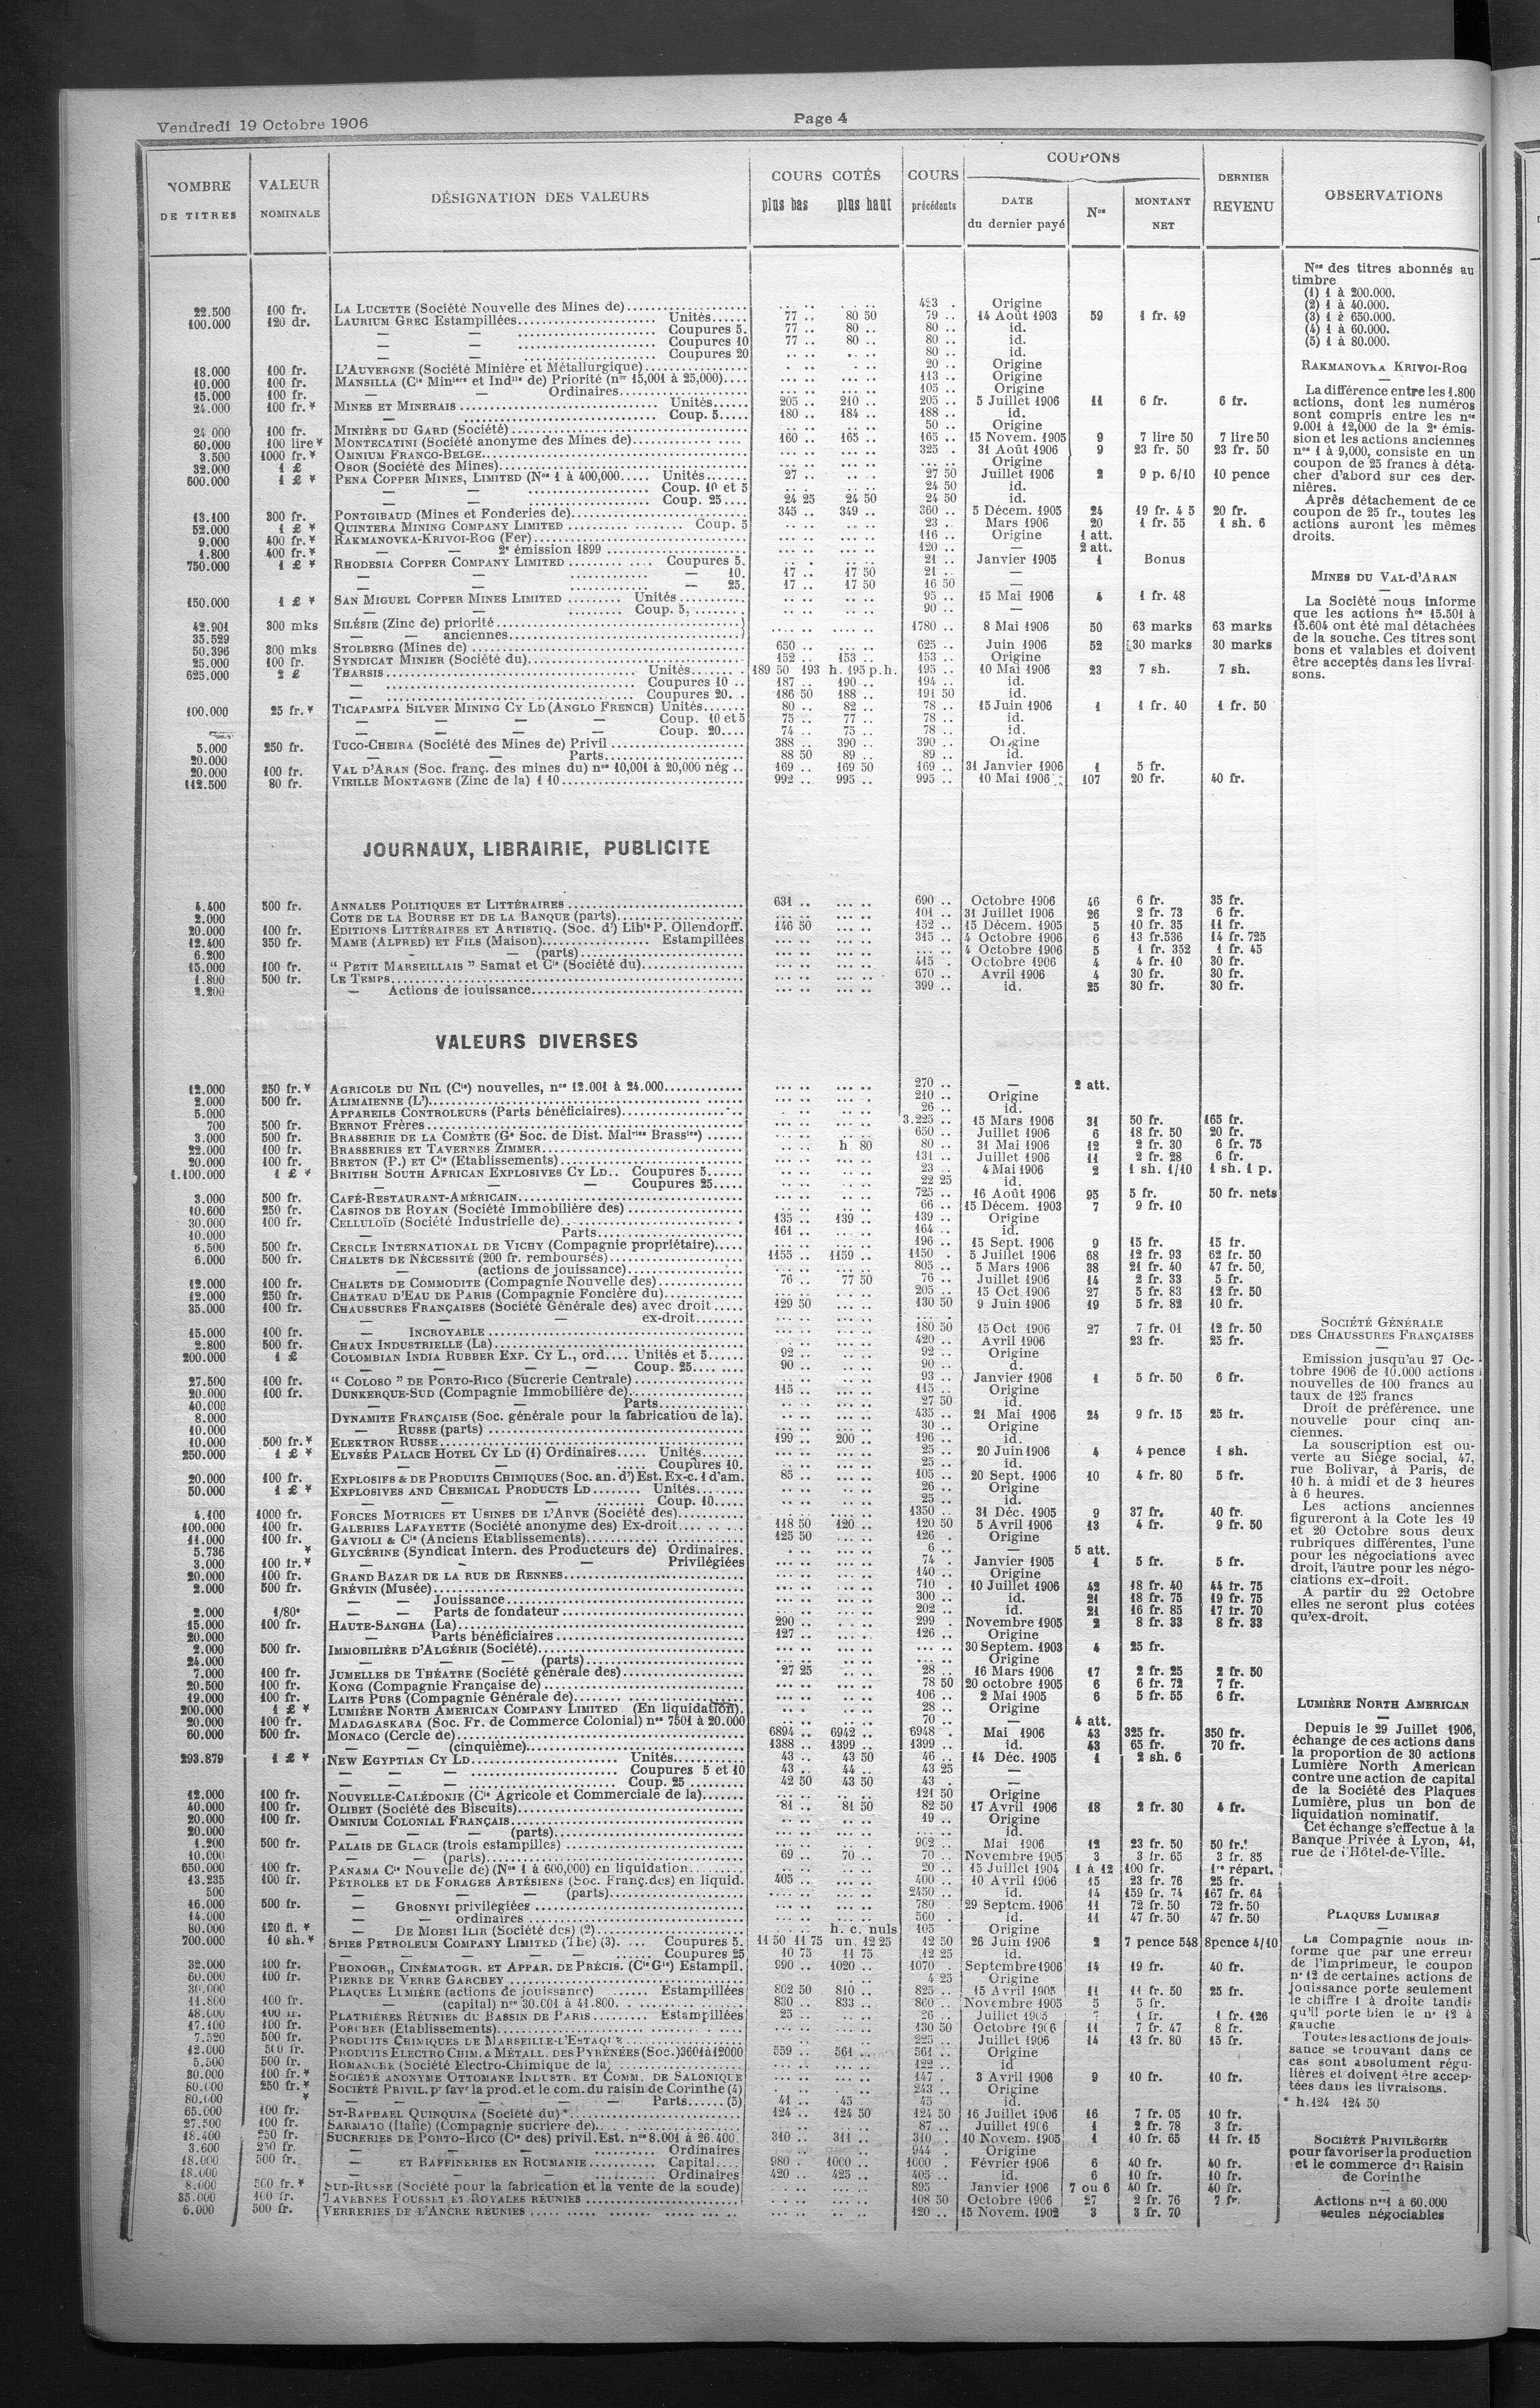 Vendredi 19 Octobre 1906
Page 4
NOMBRE DE TITRES | VALEUR NOMINALE | DÉSIGNATION DES VALEURS | COURS COTÉS plus bas plus haut | COURS précédents | COUPONS DATE du dernier payé | Nos | MONTANT NET | DERNIER REVENU | OBSERVATIONS
22.500 100 fr. LA LUCETTE (Société Nouvelle des Mines de) 423 . Origine
100.000 120 dr. LAURIUM GREC Estampillées Unités 77 .. 80 50 79 .. 14 Août 1903 59 1 fr. 49
— — Coupures 5. 77 .. 80 .. 80 .. id.
— — Coupures 10 77 .. 80 .. 80 .. id.
— — Coupures 20 80 .. id.
18.000 100 fr. L'AUVERGNE (Société Minière et Métallurgique) 20 .. Origine
10.000 100 fr. MANSILLA (Cie Minière et Indlle de) Priorité (nos 15,001 à 25,000) 113 .. Origine
15.000 100 fr. — — Ordinaires 105 .. Origine
24.000 100 fr.* MINES ET MINERAIS Unités 205 .. 210 .. 205 .. 5 Juillet 1906 11 6 fr. 6 fr.
— Coup. 5 180 .. 184 .. 188 .. id.
24 000 100 fr. MINIÈRE DU GARD (Société) 50 .. Origine
60.000 100 lire* MONTECATINI (Société anonyme des Mines de) 160 .. 165 .. 165 .. 15 Novem. 1905 9 7 lire 50 7 lire 50
3.500 1000 fr.* OMNIUM FRANCO-BELGE 325 . 31 Août 1906 9 23 fr. 50 23 fr. 50
32.000 1 £ OSOR (Société des Mines) Origine
600.000 1 £ * PENA COPPER MINES, LIMITED (Nos 1 à 400,000 Unités 27 .. 27 50 Juillet 1906 2 9 p. 6/10 10 pence
— — Coup. 10 et 5 24 50 id.
— — Coup. 25 24 25 24 50 24 50 id.
13.100 300 fr. PONTGIBAUD (Mines et Fonderies de) 345 .. 349 .. 360 .. 5 Décem. 1905 24 19 fr. 4 5 20 fr.
52.000 1 £ * QUINTERA MINING COMPANY LIMITED Coup. 5 23 . Mars 1906 20 1 fr. 55 1 sh. 6
9.000 400 fr.* RAKMANOVKA-KRIVOI-ROG (Fer) 116 .. Origine 1 att.
1.800 400 fr.* — — 2e émission 1899 120 .. — 2 att.
750.000 1 £ * RHODESIA COPPER COMPANY LIMITED Coupures 5. 21 .. Janvier 1905 1 Bonus
— — — 10. 17 .. 17 50 21 .. —
— — — 25. 17 .. 17 50 16 50 —
150.000 1 £ * SAN MIGUEL COPPER MINES LIMITED Unités 95 .. 15 Mai 1906 4 1 fr. 48
— — Coup. 5, 90 .. —
42.901 300 mks SILÉSIE (Zinc de) priorité 1780 .. 8 Mai 1906 50 63 marks 63 marks
35.529 — — anciennes
50.396 300 mks STOLBERG (Mines de) 650 .. 625 .. Juin 1906 52 30 marks 30 marks
25.000 100 fr. SYNDICAT MINIER (Société du) 152 .. 153 .. 153 .. Origine
625.000 2 £ THARSIS Unités 189 50 193 h. 195 p.h. 195 .. 10 Mai 1906 23 7 sh. 7 sh.
— Coupures 10 187 .. 190 .. 194 .. id.
— Coupures 20. 186 50 188 .. 191 50 id.
100.000 25 fr.* TICAPAMPA SILVER MINING CY LD (ANGLO FRENCH) Unités 80 .. 82 .. 78 .. 15 Juin 1906 1 1 fr. 40 1 fr. 50
— — — — Coup. 10 et 5 75 .. 77 .. 78 .. id.
— — — Coup. 20 74 .. 75 .. 78 .. id.
5.000 250 fr. TUCO-CHEIRA (Société des Mines de) Privil 388 .. 390 .. 390 .. Origine
20.000 — — Parts 88 50 89 .. 89 .. id.
20.000 100 fr. VAL D'ARAN (Soc. franç. des mines du) nos 10,001 à 20,000 nég .. 169 .. 169 50 169 .. 31 Janvier 1906 1 5 fr.
112.500 80 fr. VIEILLE MONTAGNE (Zinc de la) 1 10 992 .. 995 .. 995 .. 10 Mai 1906 107 20 fr. 40 fr.
JOURNAUX, LIBRAIRIE, PUBLICITE
4.400 500 fr. ANNALES POLITIQUES ET LITTÉRAIRES 631 .. 690 .. Octobre 1906 46 6 fr. 35 fr.
2.000 COTE DE LA BOURSE ET DE LA BANQUE (parts) 101 .. 31 Juillet 1906 26 2 fr. 73 6 fr.
20.000 100 fr. EDITIONS LITTÉRAIRES ET ARTISTIQ. (Soc. d') Libie P. Ollendorff. 146 50 152 .. 15 Décem. 1905 5 10 fr. 35 11 fr.
12.400 350 fr. MAME (ALFRED) ET FILS (Maison) Estampillées 315 .. 4 Octobre 1906 6 13 fr.536 14 fr. 725
6.200 — — (parts) 4 Octobre 1906 5 1 fr. 352 1 fr. 45
15.000 100 fr. “ PETIT MARSEILLAIS ” Samat et Cie (Société du) 415 . Octobre 1906 4 4 fr. 10 30 fr.
1.800 500 fr. LE TEMPS 670 .. Avril 1906 4 30 fr. 30 fr.
2.200 — Actions de jouissance 399 .. id. 25 30 fr. 30 fr.
VALEURS DIVERSES
12.000 250 fr.* AGRICOLE DU NIL (Cie) nouvelles, nos 12.001 à 24.000 270 .. — 2 att.
2.000 500 fr. ALIMAIENNE (L') 210 .. Origine
5.000 APPAREILS CONTROLEURS (Parts bénéficiaires) 26 .. id.
700 500 fr. BERNOT Frères 3.225 .. 15 Mars 1906 31 50 fr. 165 fr.
3.000 500 fr. BRASSERIE DE LA COMÈTE (Ge Soc. de Dist. Malries Brassies) 650 .. Juillet 1906 6 18 fr. 50 20 fr.
22.000 100 fr. BRASSERIES ET TAVERNES ZIMMER h 80 80 .. 31 Mai 1906 12 2 fr. 30 6 fr. 75
20.000 100 fr. BRETON (P.) ET Cie (Etablissements) 131 .. Juillet 1906 11 2 fr. 28 6 fr.
1.100.000 1 £ * BRITISH SOUTH AFRICAN EXPLOSIVES CY LD Coupures 5 23 .. 4 Mai 1906 2 1 sh. 1/10 1 sh. 1 p.
— — — Coupures 25 22 25 id.
3.000 500 fr. CAFÉ-RESTAURANT-AMÉRICAIN 725 .. 16 Août 1906 95 5 fr. 50 fr. nets
10.600 250 fr. CASINOS DE ROYAN (Société Immobilière des) 66 .. 15 Décem. 1903 7 9 fr. 10
30.000 100 fr. CELLULOÏD (Société Industrielle de) 135 .. 139 .. 139 .. Origine
10.000 — Parts 161 .. 164 .. id.
6.500 500 fr. CERCLE INTERNATIONAL DE VICHY (Compagnie propriétaire) 196 .. 15 Sept. 1906 9 15 fr. 15 fr.
6.000 500 fr. CHALETS DE NÉCESSITÉ (200 fr. remboursés) 1155 .. 1159 .. 1150 . 5 Juillet 1906 68 12 fr. 93 62 fr. 50
— (actions de jouissance) 805 .. 5 Mars 1906 38 21 fr. 40 47 fr. 50
12.000 100 fr. CHALETS DE COMMODITE (Compagnie Nouvelle des) 76 .. 77 50 76 .. Juillet 1906 14 2 fr. 33 5 fr.
12.000 250 fr. CHATEAU D'EAU DE PARIS (Compagnie Foncière du) 205 .. 15 Oct. 1906 27 5 fr. 83 12 fr. 50
35.000 100 fr. CHAUSSURES FRANÇAISES (Société Générale des) avec droit 129 50 130 50 9 Juin 1906 19 5 fr. 82 10 fr.
— — — ex-droit
15.000 100 fr. — INCROYABLE 180 50 15 Oct 1906 27 7 fr. 01 12 fr. 50
2.800 500 fr. CHAUX INDUSTRIELLE (La) 420 .. Avril 1906 23 fr. 25 fr.
200.000 1 £ COLOMBIAN INDIA RUBBER EXP. CY L., ord. Unités et 5 92 .. 92 .. Origine
— — — — Coup. 25 90 .. 90 .. d.
27.500 100 fr. “ COLOSO ” DE PORTO-RICO (Sucrerie Centrale) 93 .. Janvier 1906 1 5 fr. 50 6 fr.
20.000 100 fr. DUNKERQUE-SUD (Compagnie Immobilière de) 115 .. 115 .. Origine
40.000 — — Parts 27 50 id.
8.000 DYNAMITE FRANÇAISE (Soc. générale pour la fabrication de la). 435 .. 21 Mai 1906 24 9 fr. 15 25 fr.
10.000 — RUSSE (parts) 30 .. Origine
10.000 500 fr.* ELEKTRON RUSSE 199 .. 200 .. 196 .. id.
250.000 1 £ * ELYSÉE PALACE HOTEL CY LD (1) Ordinaires Unités 25 .. 20 Juin 1906 4 4 pence 1 sh.
— — Coupures 10. 25 .. id.
20.000 100 fr. EXPLOSIFS & DE PRODUITS CHIMIQUES (Soc. an. d') Est. Ex-c. 1 d'am. 85 .. 105 .. 20 Sept. 1906 10 4 fr. 80 5 fr.
50.000 1 £ * EXPLOSIVES AND CHEMICAL PRODUCTS LD Unités 26 .. Origine
— — — Coup. 10 25 .. id.
4.100 1000 fr. FORCES MOTRICES ET USINES DE L'ARVE (Société des) 1350 .. 31 Déc. 1905 9 37 fr. 40 fr.
100.000 100 fr. GALERIES LAFAYETTE (Société anonyme des) Ex-droit 118 50 120 .. 120 50 5 Avril 1906 13 4 fr. 9 fr. 50
11.000 100 fr. GAVIOLI & Cie (Anciens Etablissements) 125 50 126 . Origine
5.736 * GLYCÉRINE (Syndicat Intern. des Producteurs de) Ordinaires. 6 .. — 5 att.
3.000 100 fr.* — — — Privilégiées 74 . Janvier 1905 1 5 fr. 5 fr.
20.000 100 fr. GRAND BAZAR DE LA RUE DE RENNES 140 .. Origine
2.000 500 fr. GRÉVIN (Musée) 710 . 10 Juillet 1906 42 18 fr. 40 44 fr. 75
— — Jouissance 300 .. id. 21 18 fr. 75 19 fr. 75
2.000 1/80e — — Parts de fondateur 202 .. id. 21 16 fr. 85 17 fr. 70
15.000 100 fr. HAUTE-SANGHA (La) 290 .. 299 . Novembre 1905 2 8 fr. 33 8 fr. 33
20.000 — Parts bénéficiaires 127 .. 126 .. Origine
2.000 500 fr. IMMOBILIÈRE D'ALGÉRIE (Société) 30 Septem. 1903 4 25 fr.
24.000 — — — (parts) Origine
7.000 100 fr. JUMELLES DE THÉATRE (Société générale des) 27 25 28 .. 16 Mars 1906 17 2 fr. 25 2 fr. 50
20.500 100 fr. KONG (Compagnie Française de) 78 50 20 octobre 1905 6 6 fr. 72 7 fr.
19.000 100 fr. LAITS PURS (Compagnie Générale de) 106 .. 2 Mai 1905 6 5 fr. 55 6 fr.
200.000 1 £ * LUMIÈRE NORTH AMERICAN COMPANY LIMITED (En liquidation). 28 .. Origine
20.000 100 fr. MADAGASKARA (Soc. Fr. de Commerce Colonial) nos 7501 à 20.000 70 .. — 4 att.
60.000 500 fr. MONACO (Cercle de) 6894 .. 6942 .. 6948 . Mai 1906 43 325 fr. 350 fr.
— — (cinquième) 1388 .. 1399 .. 1399 .. id. 43 65 fr. 70 fr.
293.879 1 £ * NEW EGYPTIAN CY LD Unités 43 .. 43 50 46 .. 14 Déc. 1905 1 2 sh. 6
— — — Coupures 5 et 10 43 .. 44 .. 43 25 —
— — — Coup. 25 42 50 43 50 43 . —
12.000 100 fr. NOUVELLE-CALÉDONIE (Cie Agricole et Commerciale de la) 121 50 Origine
40.000 100 fr. OLIBET (Société des Biscuits) 81 .. 81 50 82 50 17 Avril 1906 18 2 fr. 30 4 fr.
20.000 100 fr. OMNIUM COLONIAL FRANÇAIS 19 .. Origine
20.000 — — — (parts) id.
1.200 500 fr. PALAIS DE GLACE (trois estampilles) 902 .. Mai 1906 12 23 fr. 50 50 fr.
10.000 — — (parts) 69 .. 70 .. Novembre 1905 3 3 fr. 65 3 fr. 85
650.000 100 fr. PANAMA Cie Nouvelle de) (Nos 1 à 600,000) en liquidation 20 .. 15 Juillet 1904 1 à 12 100 fr. 1re répart.
13.235 100 fr. PÉTROLES ET DE FORAGES ARTÉSIENS (Soc. Franç.des) en liquid. 405 .. 400 .. 10 Avril 1906 15 23 fr. 76 25 fr.
500 — — — (parts) 2450 .. id. 14 159 fr. 74 167 fr. 64
16.000 500 fr. — GROSNYI privilégiées 780 29 Septem. 1906 11 72 fr. 50 72 fr. 50
14.000 — — ordinaires 560 . id. 11 47 fr. 50 47 fr. 50
80.000 120 fl. * — DE MOESI ILIR (Société des) (2) h. c. nuls 105 Origine
700.000 10 sh.* SPIES PETROLEUM COMPANY LIMITED (The) (3). Coupures 5. 11 50 11 75 un. 12 25 12 50 26 Juin 1906 2 7 pence 548 8pence 4/10
— — — — — Coupures 25 10 75 11 75 12 25 id.
32.000 100 fr. PHONOGR., CINÉMATOGR. ET APPAR. DE PRÉCIS. (Cie Gle) Estampil. 990 .. 1020 .. 1070 . Septembre 1906 14 19 fr. 40 fr.
60.000 100 fr. PIERRE DE VERRE GARCHEY 4 25 Origine
30.000 PLAQUES LUMIÈRE (actions de jouissance) Estampillées 802 50 810 .. 825 .. 15 Avril 1905 11 11 fr. 50 25 fr.
11.800 100 fr. — (capital) nos 30.001 à 41.800 830 .. 833 .. 860 .. Novembre 1905 5 5 fr.
48.000 100 fr. PLATRIÈRES RÉUNIES DU BASSIN DE PARIS Estampillées 25 .. 26 .. Juillet 1905 7 1 fr. 1 fr. 126
17.100 100 fr. PORCHER (Etablissements) 130 50 Octobre 1906 11 7 fr. 47 8 fr.
7.520 500 fr. PRODUITS CHIMIQUES DE MARSEILLE-L'ESTAQUE 225 .. Juillet 1906 14 13 fr. 80 15 fr.
12.000 500 fr. PRODUITS ELECTRO CHIM. & MÉTALL. DES PYRÉNÉES (Soc.) 3601 à 12000 559 .. 561 .. 561 .. Origine
5.500 500 fr. ROMANCHE (Société Electro-Chimique de la) 122 .. id
30.000 100 fr.* SOCIÉTÉ ANONYME OTTOMANE INDUSTR. ET COMM. DE SALONIQUE 147 . 3 Avril 1906 9 10 fr. 10 fr.
80.000 250 fr.* SOCIÉTÉ PRIVIL. pr favr la prod. et le com. du raisin de Corinthe (4) 243 .. Origine
80.000 * — — — Parts (5) 41 .. 45 .. 45 id.
65.000 100 fr. ST-RAPHAEL QUINQUINA (Société du) * 124 .. 124 50 124 50 16 Juillet 1906 16 7 fr. 05 10 fr.
27.500 100 fr. SARMATO (Italie) (Compagnie sucriere de) 87 .. Juillet 1906 1 2 fr. 78 3 fr.
18.400 250 fr. SUCRERIES DE PORTO-RICO (Cie des) privil. Est. nos 8.001 à 26.400. 310 .. 311 .. 310 .. 10 Novem. 1905 1 10 fr. 65 11 fr. 15
3.600 250 fr. — — — Ordinaires 944 . Origine
18.000 500 fr. — ET RAFFINERIES EN ROUMANIE Capital 980 . 1000 .. 1000 . Février 1906 6 40 fr. 40 fr.
18.000 — — — Ordinaires 420 .. 425 .. 405 .. id. 6 10 fr. 10 fr.
8.000 500 fr.* SUD-RUSSE (Société pour la fabrication et la vente de la soude) 895 Janvier 1906 7 ou 6 40 fr. 40 fr.
35.000 100 fr. TAVERNES POUSSET ET ROYALES RÉUNIES 108 50 Octobre 1906 27 2 fr. 76 7 fr.
6.000 500 fr. VERRERIES DE L'ANCRE RÉUNIES 120 .. 15 Novem. 1902 3 3 fr. 70
Nos des titres abonnés au
timbre
(1) 1 à 200.000.
(2) 1 à 40.000.
(3) 1 à 650.000.
(4) 1 à 60.000.
(5) 1 à 80.000.
RAKMANOVKA KRIVOI-ROG
La différence entre les 1.800
actions, dont les numéros
sont compris entre les nos
9.001 à 12,000 de la 2e émis-
sion et les actions anciennes
nos 1 à 9,000, consiste en un
coupon de 25 francs à déta-
cher d'abord sur ces der-
nières.
Après détachement de ce
coupon de 25 fr., toutes les
actions auront les mêmes
droits.
MINES DU VAL-d'ARAN
La Société nous informe
que les actions nos 15.501 à
15.604 ont été mal détachées
de la souche. Ces titres sont
bons et valables et doivent
être acceptés dans les livrai-
sons.
SOCIÉTÉ GÉNÉRALE
DES CHAUSSURES FRANÇAISES
Emission jusqu'au 27 Oc-
tobre 1906 de 10.000 actions
nouvelles de 100 francs au
taux de 125 francs
Droit de préférence. une
nouvelle pour cinq an-
ciennes.
La souscription est ou-
verte au Siège social, 47,
rue Bolivar, à Paris, de
10 h. à midi et de 3 heures
à 6 heures.
Les actions anciennes
figureront à la Cote les 19
et 20 Octobre sous deux
rubriques différentes, l'une
pour les négociations avec
droit, l'autre pour les négo-
ciations ex-droit.
A partir du 22 Octobre
elles ne seront plus cotées
qu'ex-droit.
LUMIÈRE NORTH AMERICAN
Depuis le 29 Juillet 1906,
échange de ces actions dans
la proportion de 30 actions
Lumière North American
contre une action de capital
de la Société des Plaques
Lumière, plus un bon de
liquidation nominatif.
Cet échange s'effectue à la
Banque Privée à Lyon, 41,
rue de l'Hôtel-de-Ville.
PLAQUES LUMIERE
La Compagnie nous in-
forme que par une erreur
de l'imprimeur, le coupon
n° 12 de certaines actions de
jouissance porte seulement
le chiffre 1 à droite tandis
qu'il porte bien le n° 12 à
gauche
Toutes les actions de jouis-
sance se trouvant dans ce
cas sont absolument régu-
lières et doivent être accep-
tées dans les livraisons.
* h.124 124 50
SOCIÉTÉ PRIVILÉGIÉE
pour favoriser la production
et le commerce du Raisin
de Corinthe
Actions nos 1 à 60.000
seules négociables